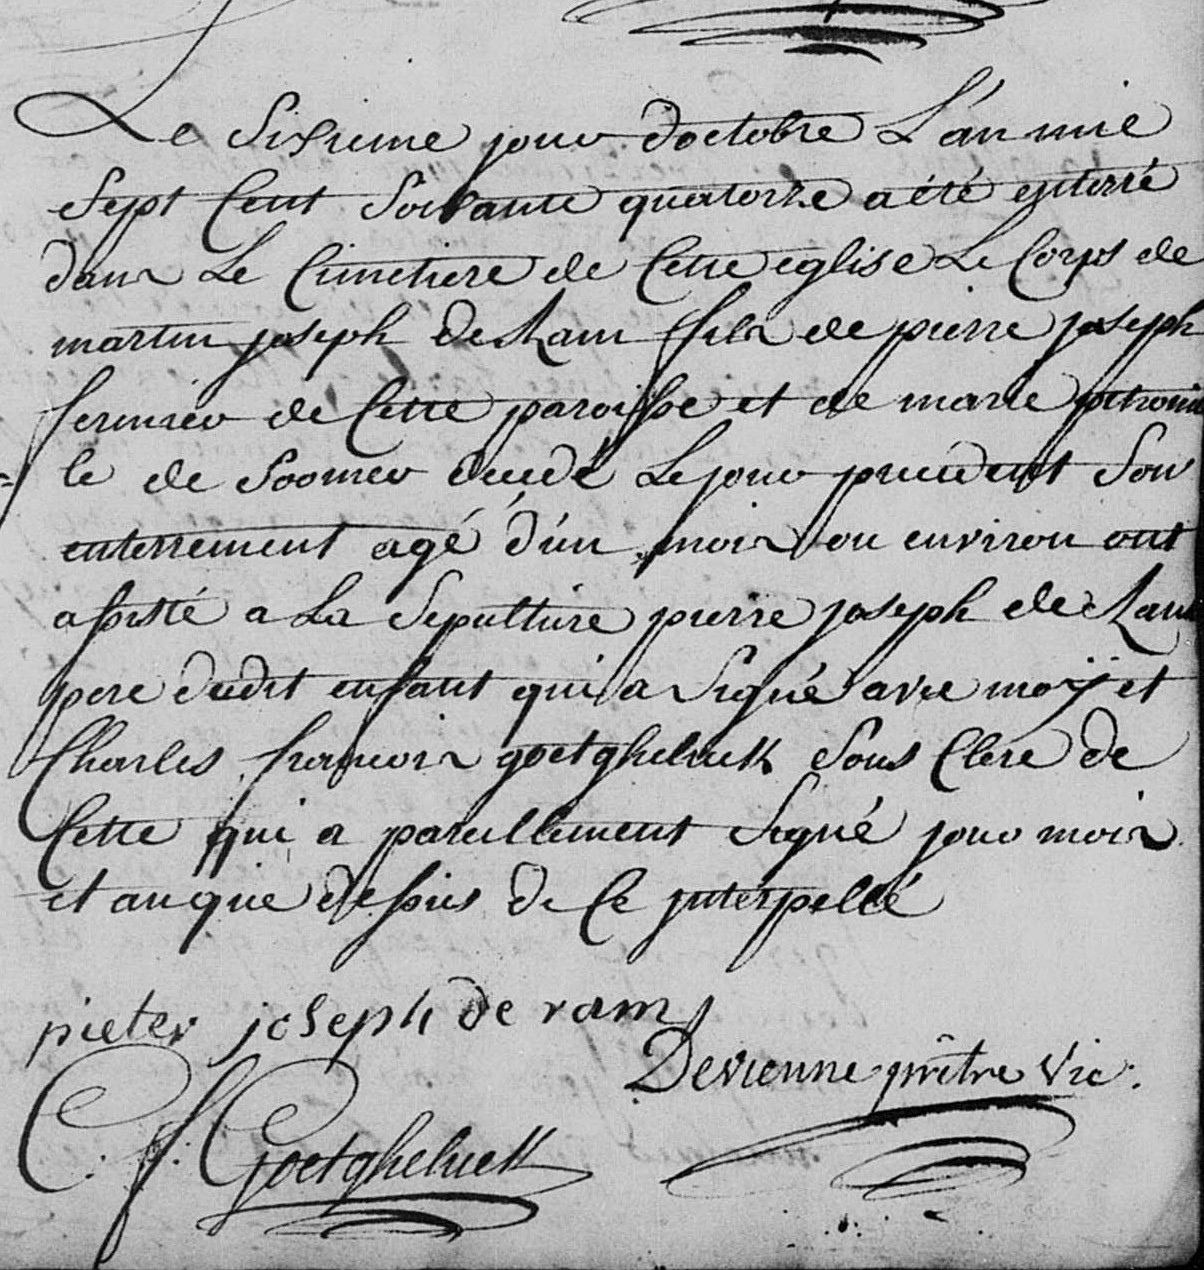 Le Sixieme jour doctobre L'an mil
Sept Cent Soixante quatorze a été enterré
dans Le Cimetiere de Cette eglise Le Corps de
martin joseph de Ram fils de pierre joseph
fermier de Cette paroisse et de marie petronil
le de Soomer decedé Le jour precedent Son
enterrement agé d'un mois ou environ ont
assisté a La Sepulture pierre joseph de Ram
pere dudit enfant qui a Signé avec moÿ et
Charles francois goetgheluck Sous Clerc de
Cette qui a pareillement Signé jour mois
et an que dessus de Ce jnterpellé
pieter joseph de ram
Devienne prêtre Vic.
C. f. Goetgheluck